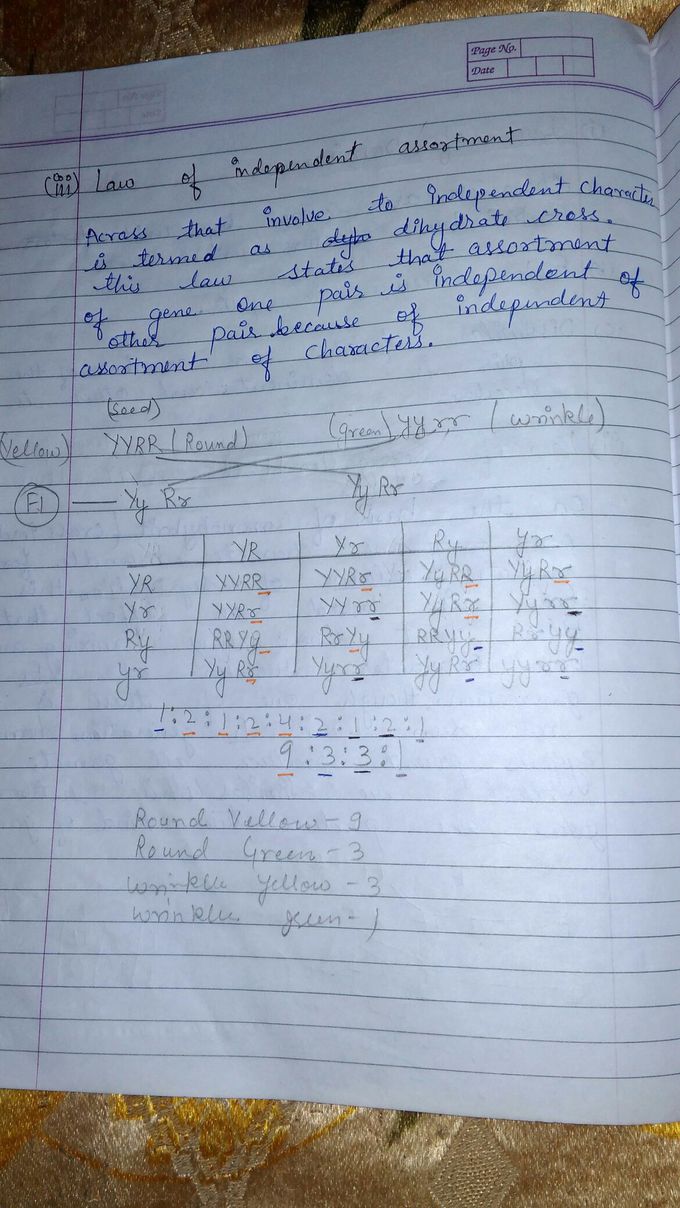 Page No.
Date
(iii) Law of independent assortment
Across that involve to independent character
is termed as dihydrate cross.
this law states that assortment
of gene one pair is independent of
other pair because of independent
assortment of characters.
(seed)
(Yellow) YYRR (Round) (green) yyrr (wrinkle)
F1 — YyRr YyRr
YR Yr Ry yr
YR YYRR YYRr YyRR YyRr
Yr YYRr YYrr YyRr Yyrr
Ry RRYy RrYy RRyy Rryy
yr YyRr Yyrr yyRr yyrr
1:2:1:2:4:2:1:2:1
9:3:3:1
Round Yellow - 9
Round Green - 3
wrinkle yellow - 3
wrinkle green - 1